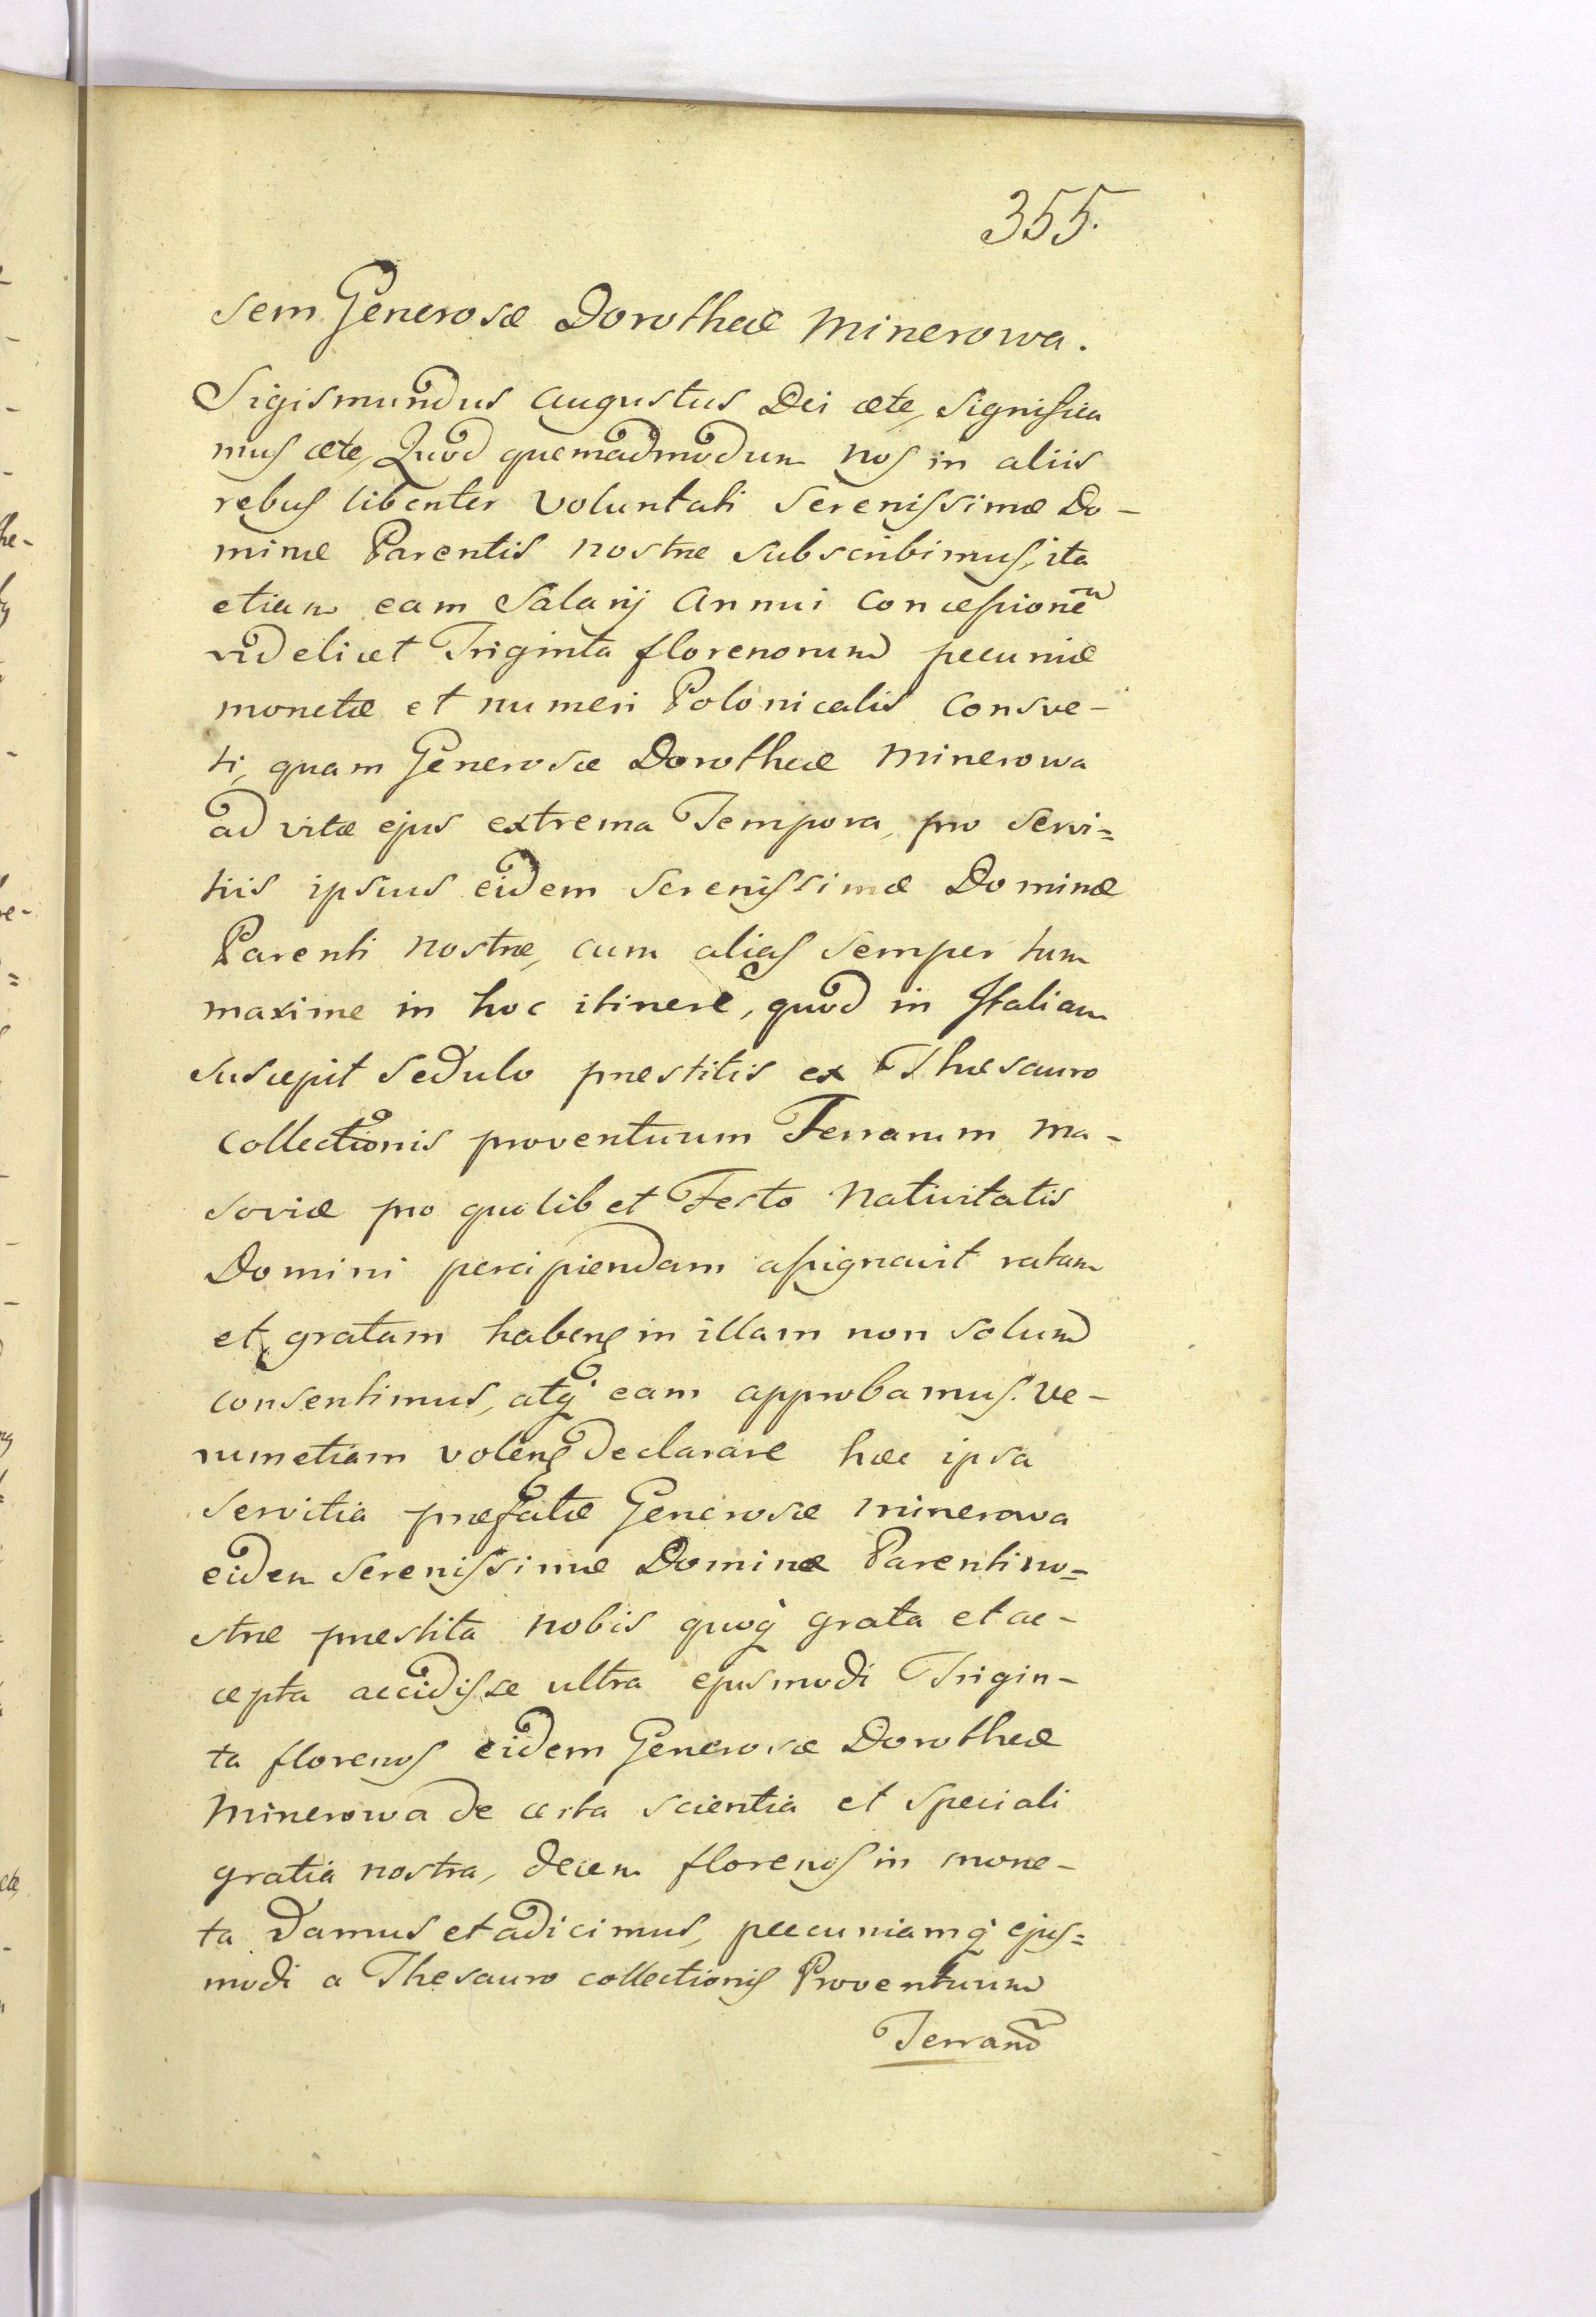 355.
sem Generosæ Dorotheæ Minerowa.
Sigismundus Augustus Dei æte, Significa
mus æte, Quod quemadmodum nos in aliis
rebus libenter voluntati Serenissimæ Do-
minæ Parentis nostræ subscribimus, ita
etiam eam Salarij Annui Concessionẽ
videlicet Triginta florenorum pecuniæ
monetæ et numeri Polonicalis Consve-
ti, quam Generosæ Dorotheæ Minerowa
ad vitæ ejus extrema Tempora, pro Servi=
tiis ipsius eidem Serenissimæ Dominæ
Parenti nostræ, cum alias semper tum
maxime in hoc itinere, quod in Italiam
suscepit sedulo præstitis ex Thæsauro
Collectionis proventuum Terrarum Ma-
soviæ pro quolibet Festo Nativitatis
Domini percipiendam assignavit ratam
et gratam habens in illam non solum
consentimus, atq́ eam approbamus. Ve-
rumetiam volens declarare hæc ipsa
Servitia præfatæ Generosæ Minerowa
eidem Serenissimæ Dominæ Parenti no=
stræ præstita nobis quoq́ grata et ac-
cepta accidisse ultra ejusmodi Trigin-
ta florenos eidem Generosæ Dorotheæ
Minerowa de certa scientia et speciali
gratia nostra, decem florenos in mone-
ta damus et adicimus, pecuniamq́ ejus=
modi a Thesauro collectionis Proventuum
Terrarũ